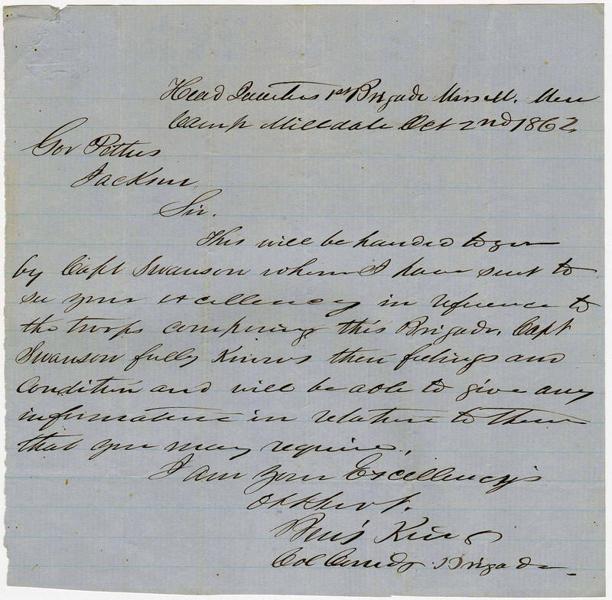 Head Quarters 1st Brigade Miss M. Men
Camp Milldale Oct 2nd 1862
Gov Pettus
Jackson
Sir.
This will be handed to you
by Capt Swanson whom I have sent to
see your excellency in reference to
the troops composing this Brigade. Capt
Swanson fully Knows their feelings and
Condition and will be able to give any
information in relation to them
that you may require.
I am your Excellency's
Obt Servt.
Benj King
Col Comdg Brigade